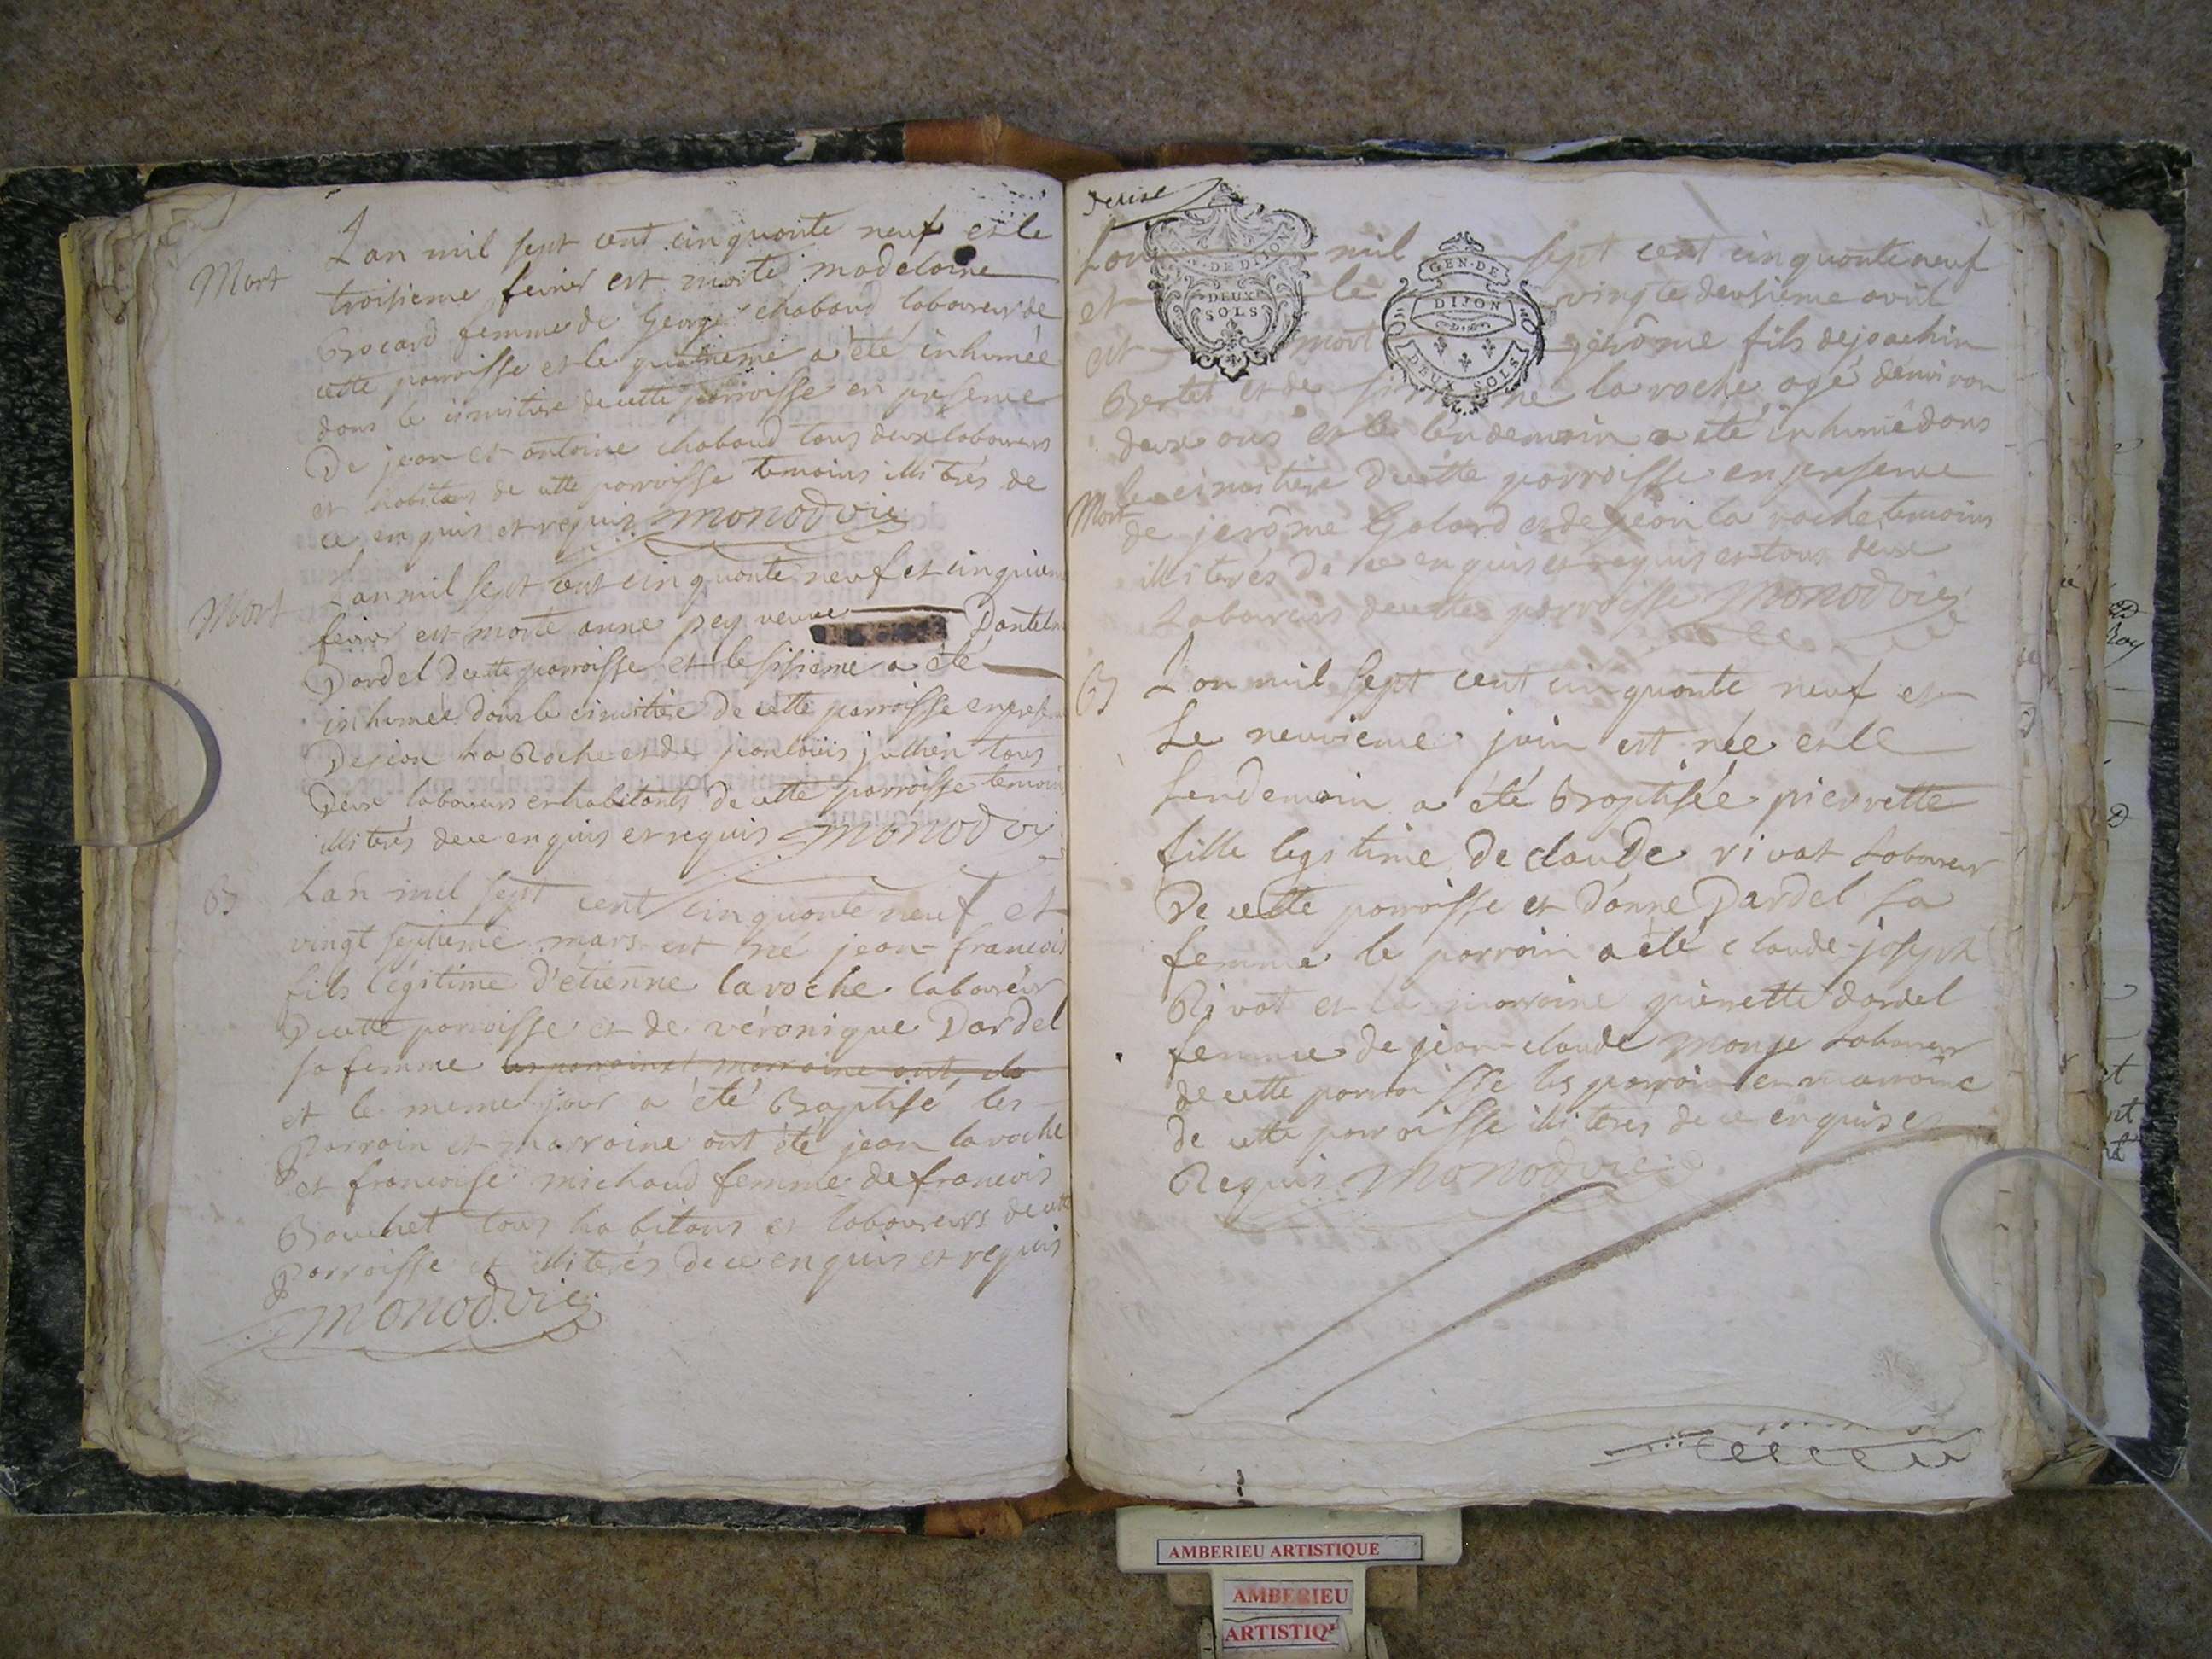 Lan mil sept cent cinquante neuf et le
Mort
troisieme fevrier est morte madelaine
Brocard femme de George chaboud laboureur de
cette parroisse et le quatrieme a été inhumée
dans le cimitiere de cette parroisse en presence
De jean et antoine chaboud tous deux laboureurs
et habitans de cette parroisse temoins illiterés de
ce enquis et requis monod vic
Lan mil sept cent cinquante neuf et cinquiem
Mort
fevrier est morte anne pey veuve D'antelm
Dardel de cette parroisse et le sisieme a été
inhumée dans le cimitiere de cette parroisse en presen
De jean La Roche et de jean louis jullien tous
Deux laboureurs et habitants de cette parroisse temoins
illiterés de ce enquis et requis monod vi
B
Lan mil sept cent cinquante neuf et
vingt septieme mars est né jean-francois
fils légitime d'étienne la roche laboureur
De cette parroisse et de véronique Dardel
sa femme les parrain et marraine ont
et le meme jour a été Baptisé les
Parrain et marraine ont été jean la roche
et francoise michaud femme de francois
Bouchet tous habitans et laboureurs de cette
Parroisse et illiterés de ce enquis et requis
monod vic
Lan mil sept cent cinquante neuf
GEN. DE DIJON
DEUX SOLS
GEN. DE
DIJON
DEUX SOLS
et le vingt e deusieme avril
est mort jerôme fils de joachin
Bertet et de la roche agé denviron
deux ans et le lendemain a été inhumé dans
le cimitiere de cette parroisse en presence
Mort
de jerôme Galard et de jean la roche temoins
illiterés de ce enquis et requis et tous deux
Laboureurs de cette parroisse monod vic
B
Lan mil sept cent cinquante neuf et
Le neuvieme juin est née et le
Lendemain a été Baptisée pierrette
fille legitime de claude rivat Laboureur
De cette parroisse et d'anne Dardel sa
femme le parrain a été claude-joseph
Rivat et la marraine pierrette dardel
femme de jean-claude monge Laboureur
de cette parroisse les parrain et marraine
de cette parroisse illiterés de ce enquis et
Requis monod vic
AMBERIEU ARTISTIQUE
AMBERIEU
ARTISTIQ